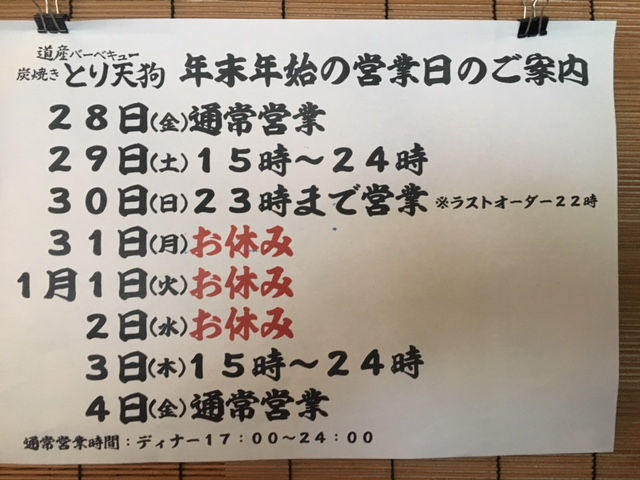 道産バーベキュー
炭焼き とり天狗 年末年始の営業日のご案内
28日(金)通常営業
29日(土)15時～24時
30日(日)23時まで営業 ※ラストオーダー22時
31日(月)お休み
1月1日(火)お休み
2日(水)お休み
3日(木)15時～24時
4日(金)通常営業
通常営業時間：ディナー17：00～24：00